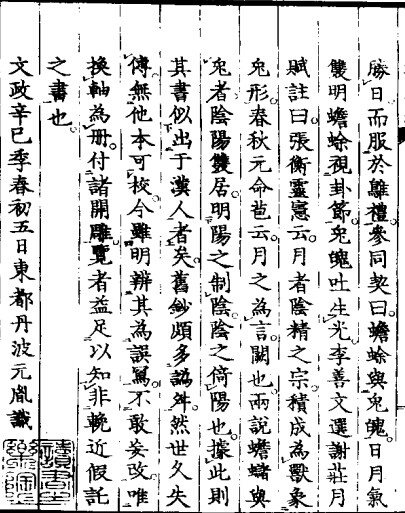 勝日而服於鵻禮參同契曰蟾蜍與兎魄日月氣
雙明蟾蜍視卦節兎魄吐生光李善文選謝莊月
賦註曰張衡靈憲云月者陰精之宗積成爲獸象
兎形春秋元命苞云月之爲言闕也兩說蟾蠩與
兎者陰陽雙居明陽之制陰陰之倚陽也據此則
其書似出于漢人者矣舊鈔頗多譌舛然世久失
傳無他本可校今雖明辨其爲誤寫不敢妄改唯
換軸爲册付諸開雕覽者益足以知非輓近假託
之書也
文政辛巳季春初五日東都丹波元胤識